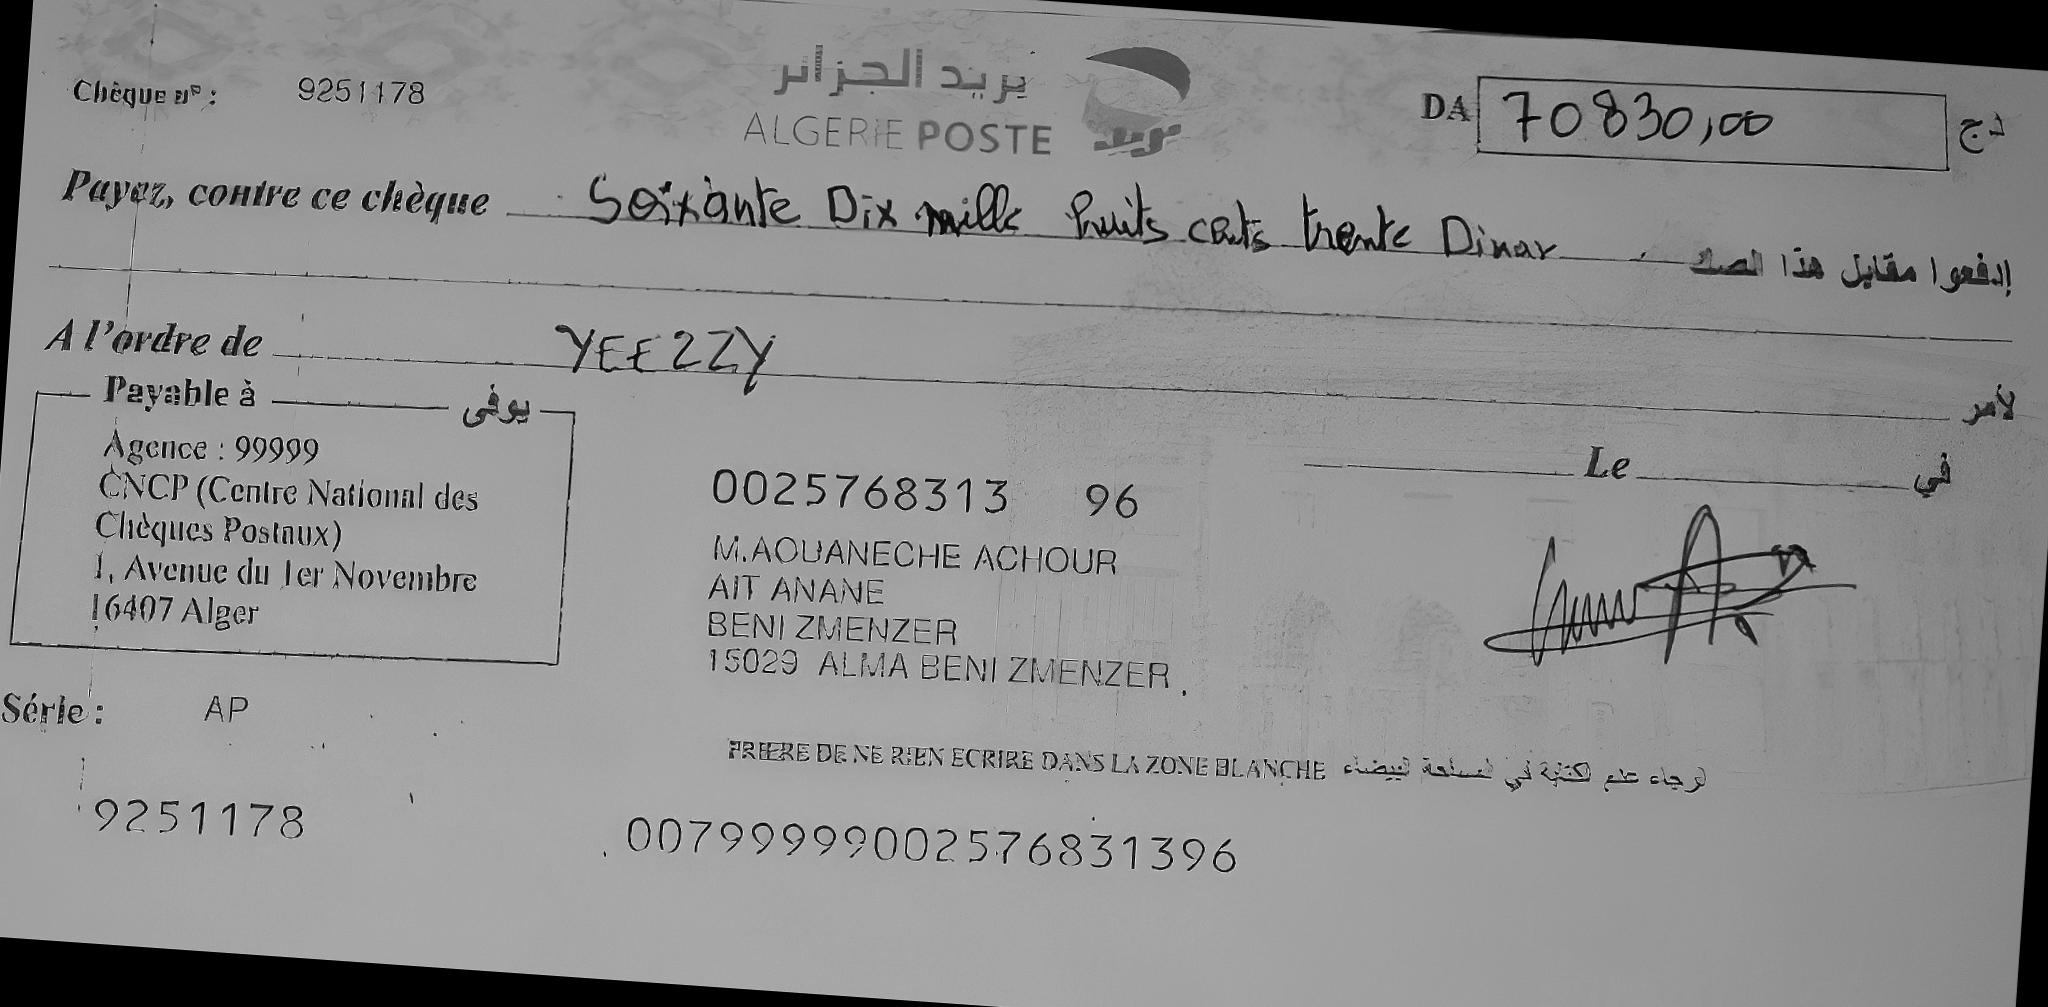 بريد الجزائر
ALGERIE POSTE
Chèque nº : 9251178
DA 70830,00 دج
Payez, contre ce chèque Soixante Dix mille huits cents trente Dinar إدفعوا مقابل هذا الصك
A l'ordre de YEEZZY لأمر
Payable à يوفى
Agence : 99999
CNCP (Centre National des
Chèques Postaux)
1, Avenue du 1er Novembre
16407 Alger
Le في
0025768313 96
M.AOUANECHE ACHOUR
AIT ANANE
BENI ZMENZER
15029 ALMA BENI ZMENZER
Série : AP
PRIERE DE NE RIEN ECRIRE DANS LA ZONE BLANCHE لرجاء عدم الكتابة في المساحة البيضاء
9251178
00799999002576831396